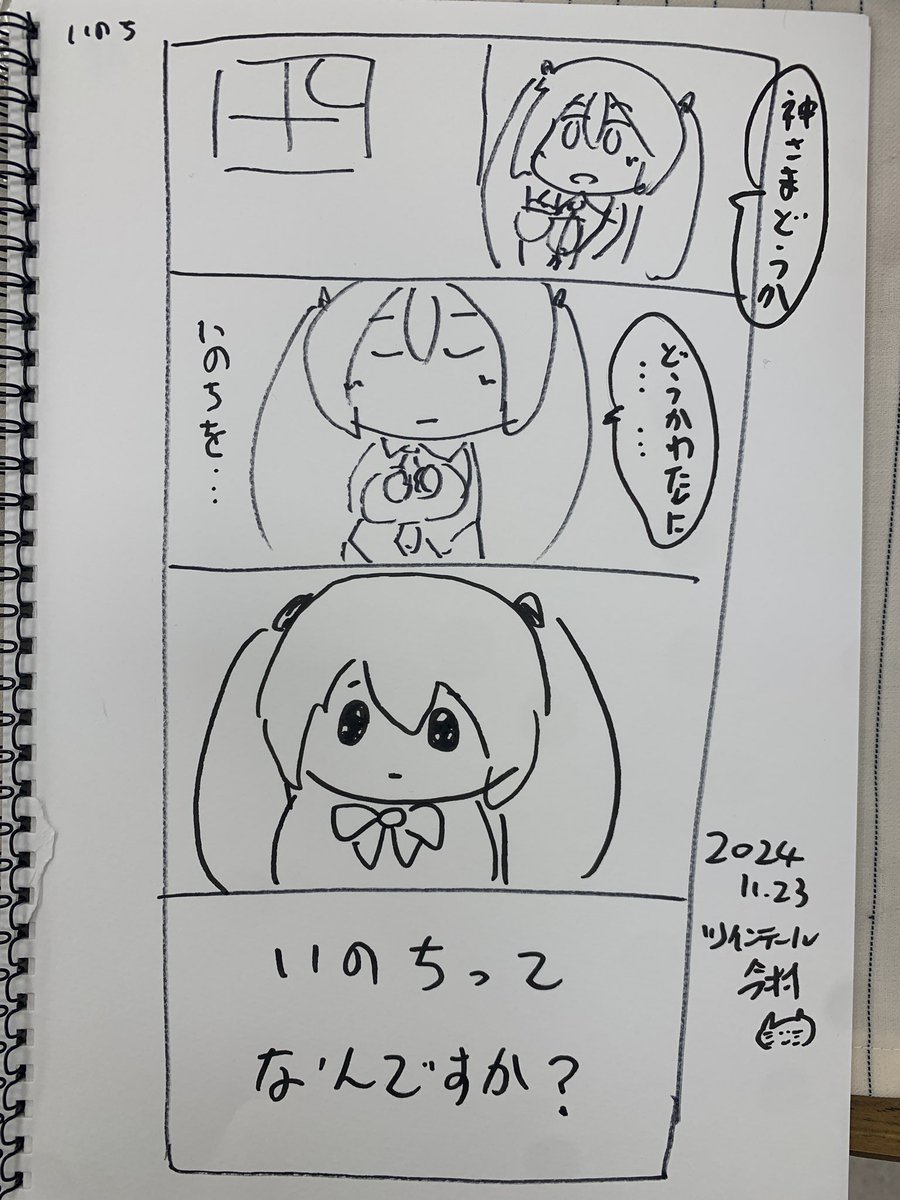 いのち
神さまどうか
どうかわたしに
……
いのちを…
いのちって
なんですか?
2024
11.23
ツインテール
今村